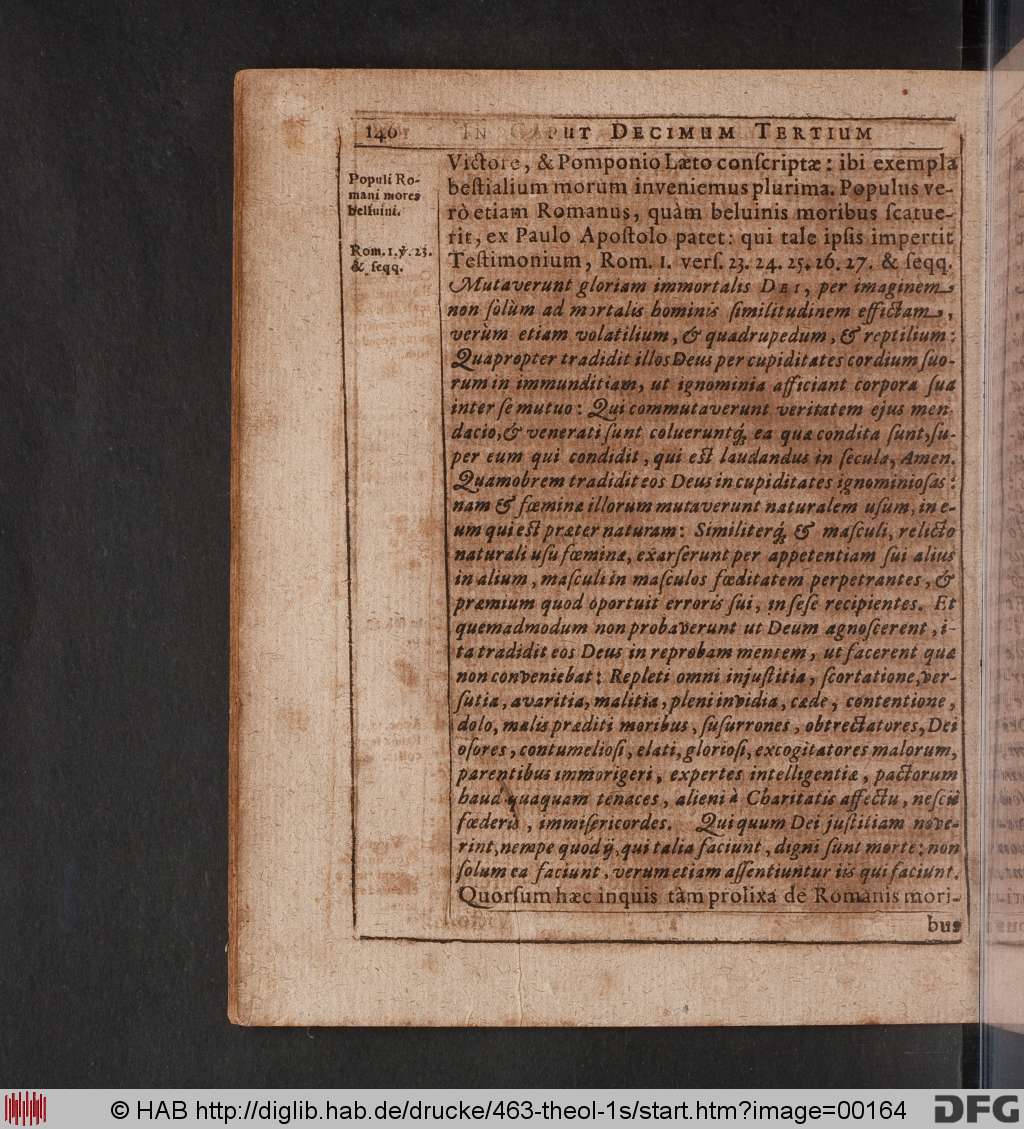 140 IN CAPUT DECIMUM TERTIUM
Populi Ro-
mani mores
belluini.
Rom. 1. ℣. 23.
& seqq.
Victore, & Pomponio Læto conſcriptæ: ibi exempla
beſtialium morum inveniemus plurima. Populus ve-
rò etiam Romanus, quàm beluinis moribus ſcatue-
rit, ex Paulo Apoſtolo patet: qui tale ipſis impertit
Teſtimonium, Rom. 1. verſ. 23. 24. 25. 26. 27. & ſeqq.
Mutaverunt gloriam immortalis DEI, per imaginem
non ſolùm ad mortalis hominis ſimilitudinem effictam,
verùm etiam volatilium, & quadrupedum, & reptilium:
Quapropter tradidit illos Deus per cupiditates cordium ſuo-
rum in immunditiam, ut ignominia afficiant corpora ſua
inter ſe mutuo: Qui commutaverunt veritatem ejus men-
dacio, & venerati ſunt colueruntq́, ea quæ condita ſunt, ſu-
per eum qui condidit, qui eſt laudandus in ſecula, Amen.
Quamobrem tradidit eos Deus in cupiditates ignominioſas:
nam & fœminæ illorum mutaverunt naturalem uſum, in e-
um qui eſt præter naturam: Similiterq́, & maſculi, relicto
naturali uſu fœminæ, exarſerunt per appetentiam ſui alius
in alium, maſculi in maſculos fœditatem perpetrantes, &
præmium quod oportuit erroris ſui, in ſeſe recipientes. Et
quemadmodum non probaverunt ut Deum agnoſcerent, i-
ta tradidit eos Deus in reprobam mentem, ut facerent quæ
non conveniebat: Repleti omni injuſtitia, ſcortatione, ver-
ſutia, avaritia, malitia, pleni invidia, cæde, contentione,
dolo, malis præditi moribus, ſuſurrones, obtrectatores, Dei
oſores, contumelioſi, elati, glorioſi, excogitatores malorum,
parentibus immorigeri, expertes intelligentiæ, pactorum
haud quaquam tenaces, alieni à Charitatis affectu, neſcii
fœderis, immiſericordes. Qui quum Dei juſtitiam nove-
rint, nempe quòd ij, qui talia faciunt, digni ſunt morte: non
ſolum ea faciunt, verum etiam aſſentiuntur iis qui faciunt.
Quorſum hæc inquis tàm prolixa de Romanis mori-
bus
© HAB http://diglib.hab.de/drucke/463-theol-1s/start.htm?image=00164
DFG